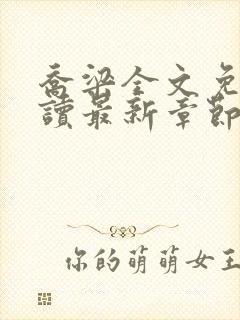 喬梁全文免
讀最新章節
你的萌萌女王